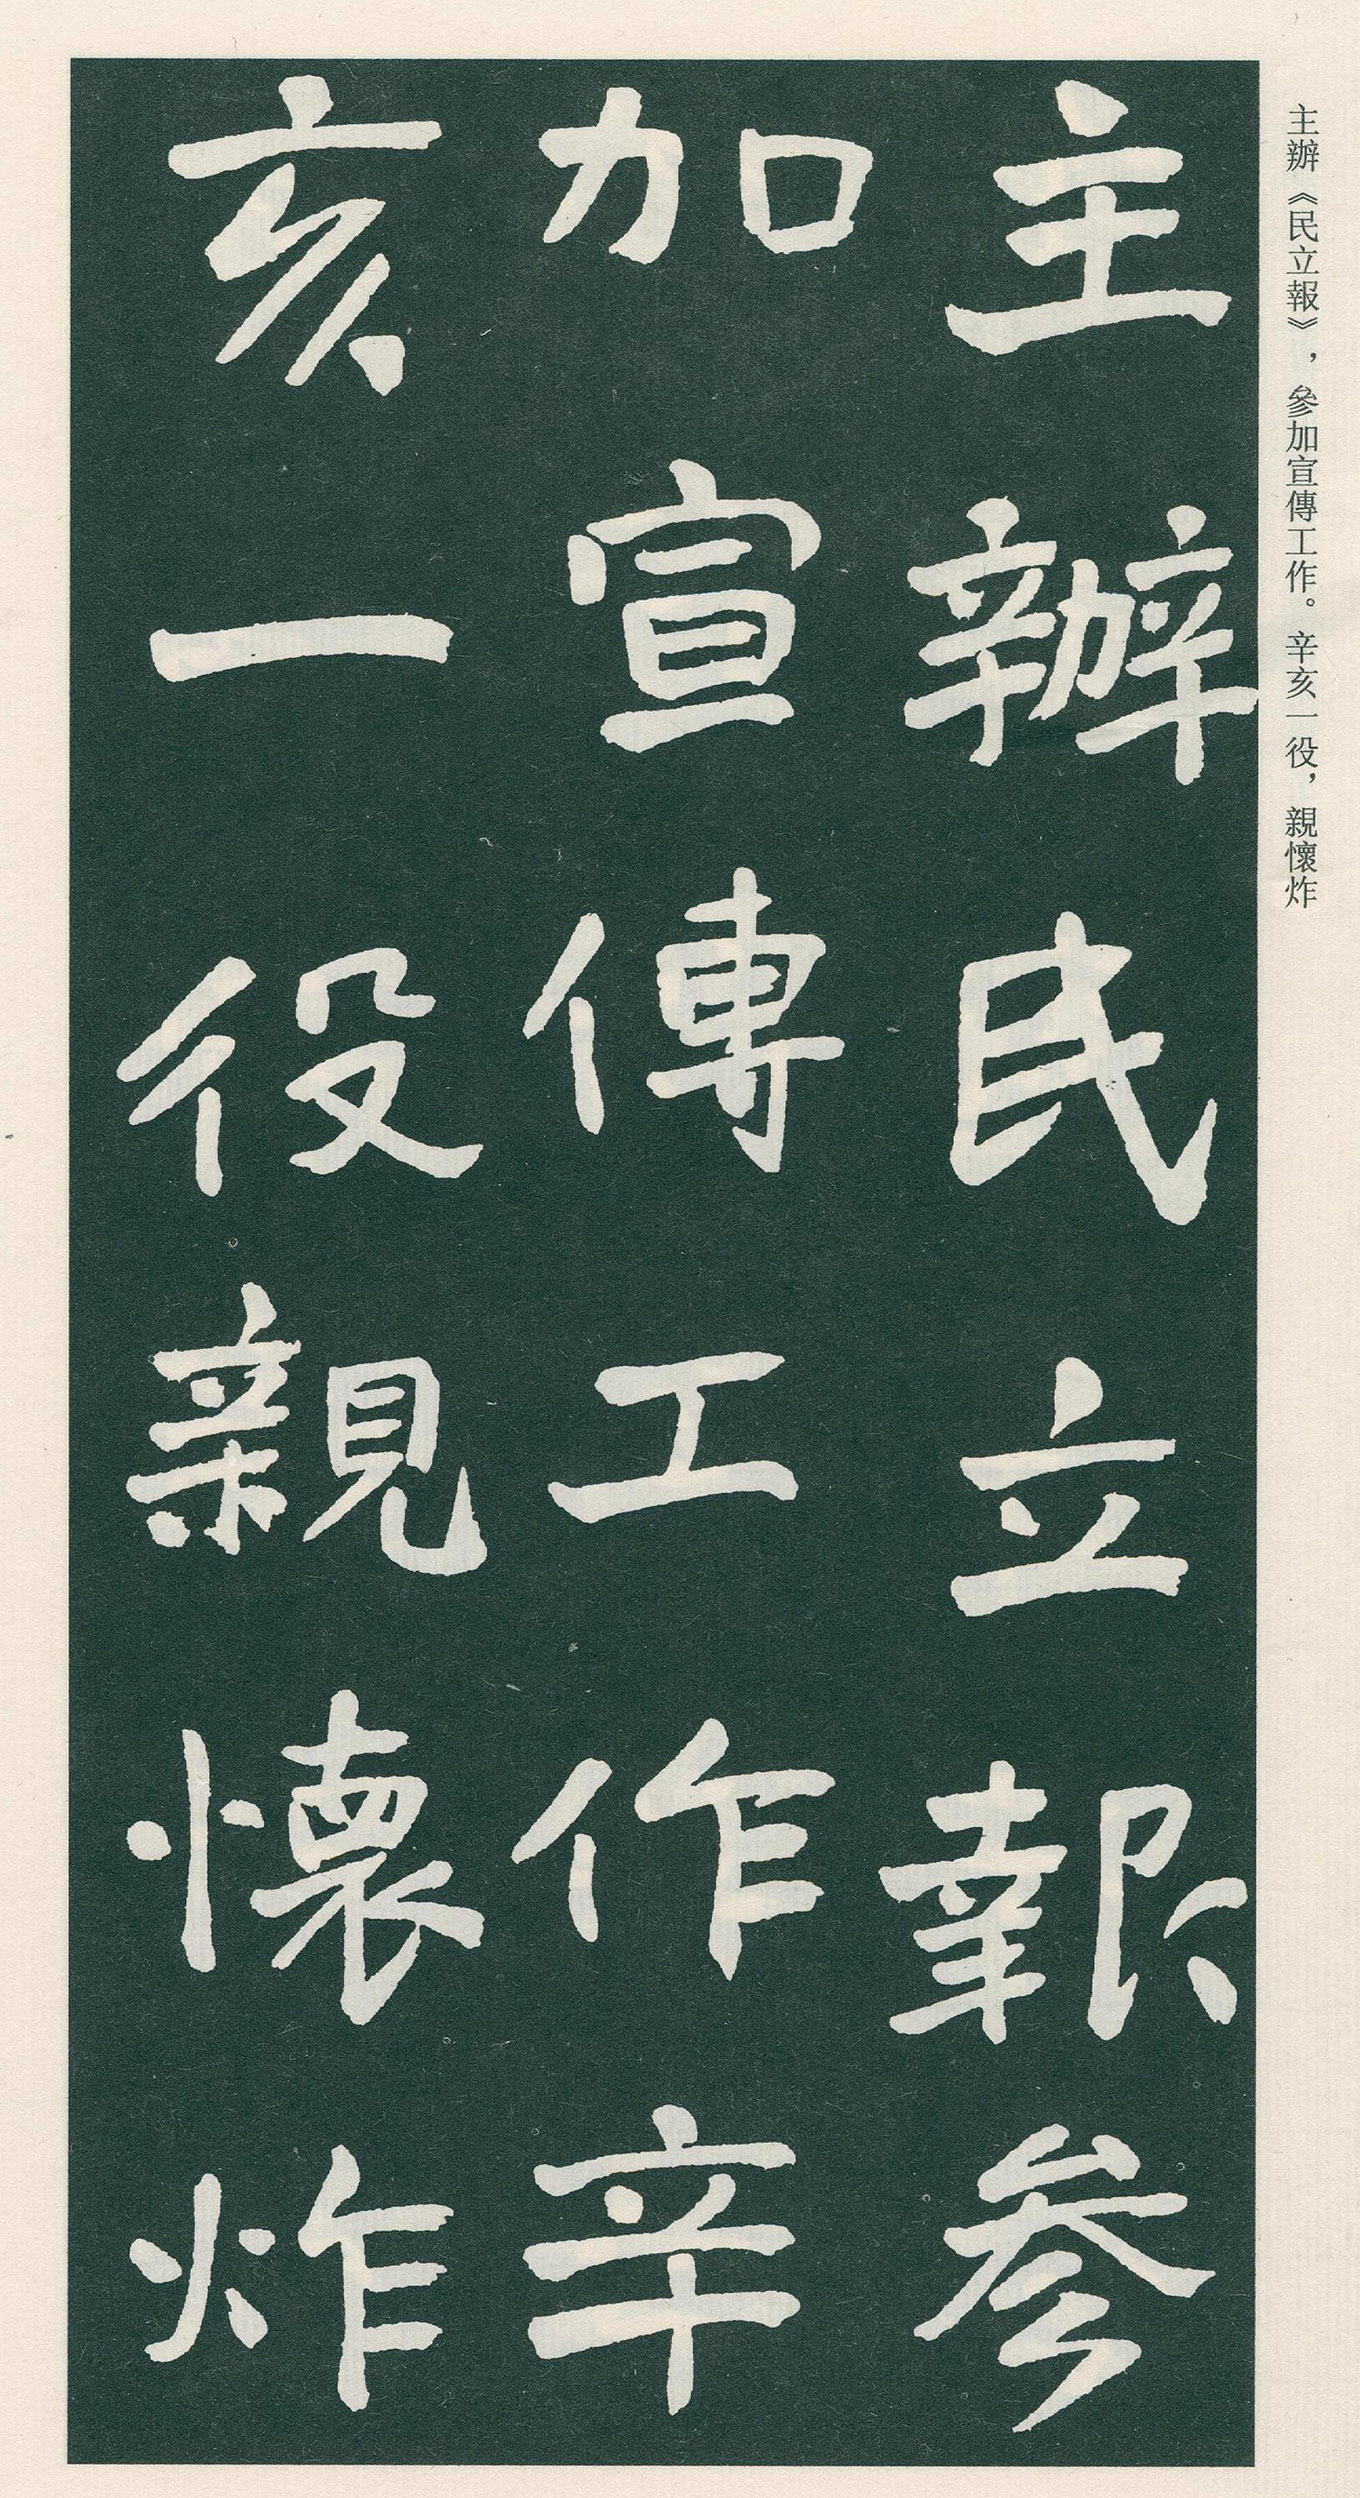 主辦《民立報》，參加宣傳工作。辛亥一役，親懷炸
主辦民立報参
加宣傳工作辛
亥一役親懷炸